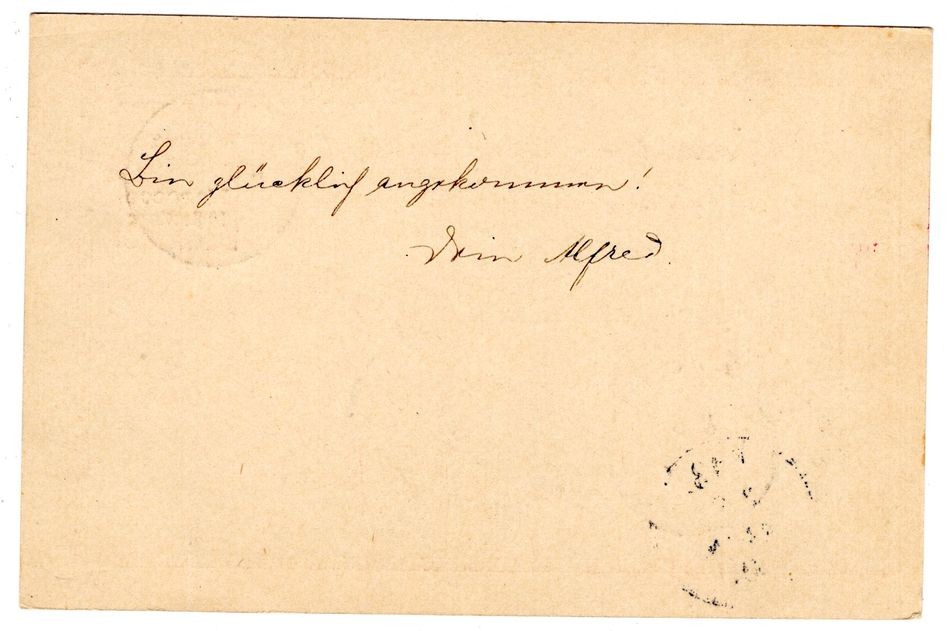 Bin glücklich angekommen!
Dein Alfred.